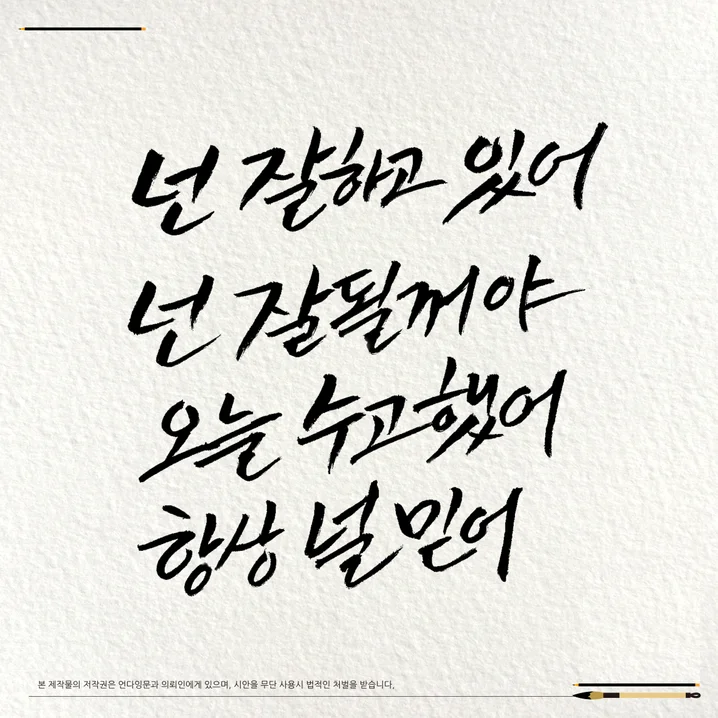 넌 잘하고 있어
넌 잘될꺼야
오늘 수고했어
항상 널 믿어
본 제작물의 저작권은 언다잉문과 의뢰인에게 있으며, 시안을 무단 사용시 법적인 처벌을 받습니다.